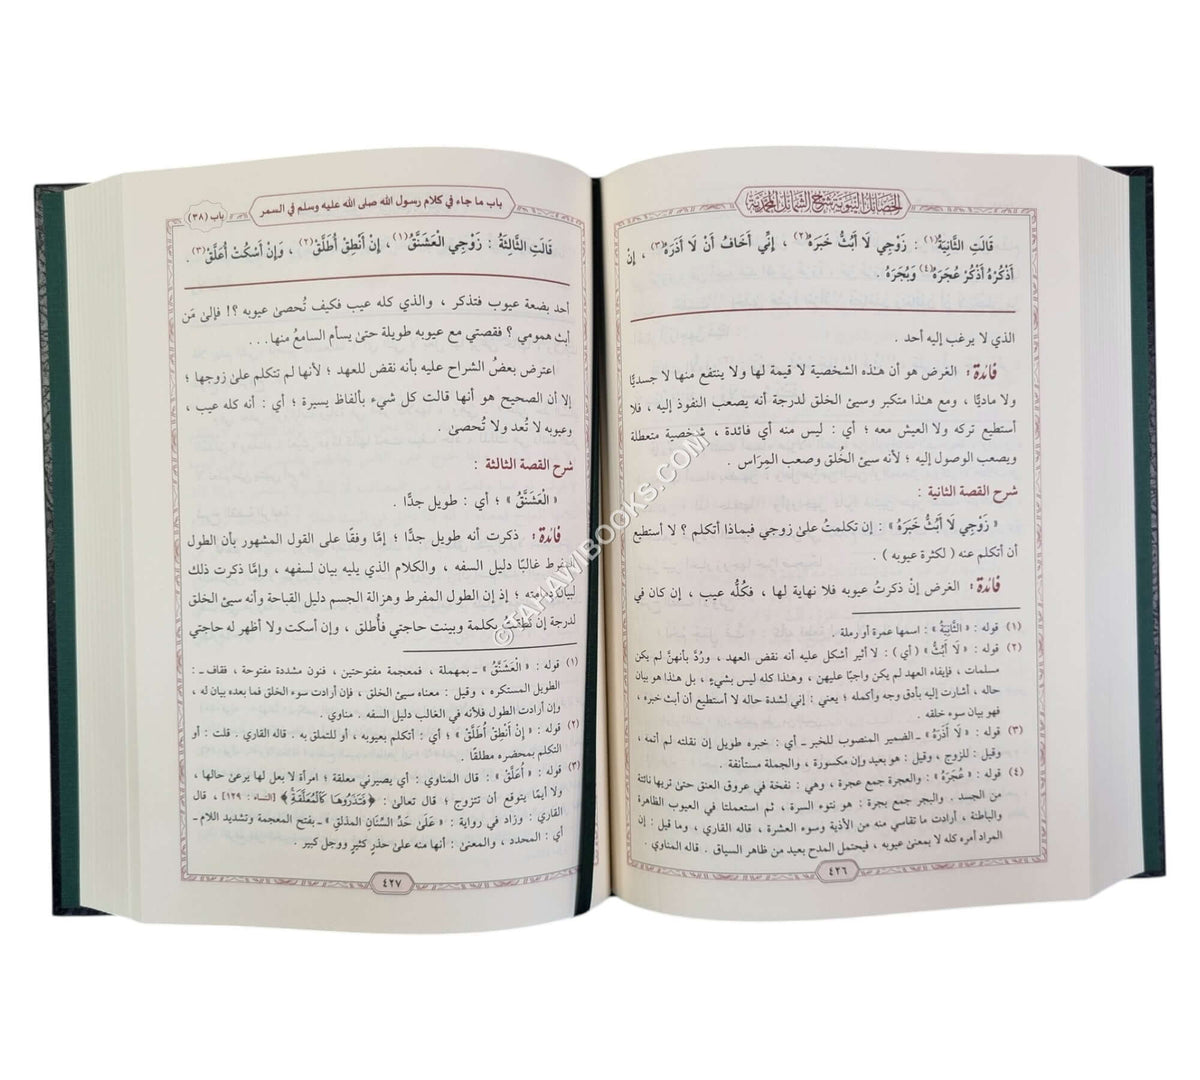 الخصائل النبوية شرح الشمائل المحمدية
قَالَتِ الثَّانِيَةُ(١) : زَوْجِي لَا أَبُثُّ خَبَرَهُ(٢) ، إِنِّي أَخَافُ أَنْ لَا أَذَرَهُ(٣) ، إِنْ
أَذْكُرْهُ أَذْكُرْ عُجَرَهُ(٤) وَبُجَرَهُ .
الذي لا يرغب إليه أحد .
فائدة : الغرض هو أن هذه الشخصية لا قيمة لها ولا ينتفع منها لا جسديًّا
ولا ماديًّا ، ومع هذا متكبر وسيئ الخلق لدرجة أنه يصعب النفوذ إليه ، فلا
أستطيع تركه ولا العيش معه ؛ أي : ليس منه أي فائدة ، شخصية متعطلة
ويصعب الوصول إليه ؛ لأنه سيئ الخُلق وصعب المِرَاس .
شرح القصة الثانية :
« زَوْجِي لَا أَبُثُّ خَبَرَهُ » : إن تكلمتُ علىٰ زوجي فبماذا أتكلم ؟ لا أستطيع
أن أتكلم عنه ( لكثرة عيوبه ) .
فائدة : الغرض إن ذكرتُ عيوبه فلا نهاية لها ، فكُلُّه عيب ، إن كان في
(١) قوله : « الثَّانِيَةُ » : اسمها عمرة أو رملة .
(٢) قوله : « لَا أَبُثُّ » ( أي ) : لا أثير أشكل عليه أنه نقض العهد ، ورُدَّ بأنهنَّ لم يكن
مسلمات ، فإيفاء العهد لم يكن واجبًا عليهن ، وهذا كله ليس بشيءٍ ، بل هذا هو بيان
حاله ، أشارت إليه بأدق وجه وأكمله ؛ يعني : إني لشدة حاله لا أستطيع أن أبث خبره ،
فهو بيان سوء خلقه .
(٣) قوله : « لَا أَذَرَهُ » ـ الضمير المنصوب للخبر ـ أي : خبره طويل إن نقلته لم أتمه ،
وقيل : للزوج ، وقيل : هو بعيد وإن مكسورة ، والجملة مستأنفة .
(٤) قوله : « عُجَرَهُ » : والعجرة جمع عجرة ، وهي : نفخة في عروق العنق حتىٰ تريها ناتئة
من الجسد . والبجر جمع بجرة : هو نتوء السرة ، ثم استعملتا في العيوب الظاهرة
والباطنة ، أرادت ما تقاسي منه من الأذية وسوء العشرة ، قاله القاري ، وما قيل : إن
المراد أمره كله لا بمعنىٰ عيوبه ، فيحتمل المدح بعيد من ظاهر السياق . قاله المناوي .
٤٢٦
باب ما جاء في كلام رسول الله صلى الله عليه وسلم في السمر
باب (٣٨)
قَالَتِ الثَّالِثَةُ : زَوْجِي الْعَشَنَّقُ(١) ، إِنْ أَنْطِقْ أُطَلَّقْ(٢) ، وَإِنْ أَسْكُتْ أُعَلَّقْ(٣) .
أحد بضعة عيوب فتذكر ، والذي كله عيب فكيف تُحصىٰ عيوبه ؟! فإلىٰ مَن
أبث همومي ؟ فقصتي مع عيوبه طويلة حتىٰ يسأم السامعُ منها . . .
اعترض بعضُ الشراح عليه بأنه نقض للعهد ؛ لأنها لم تتكلم علىٰ زوجها ؛
إلا أن الصحيح هو أنها قالت كل شيء بألفاظ يسيرة ؛ أي : أنه كله عيب ،
وعيوبه لا تُعد ولا تُحصىٰ .
شرح القصة الثالثة :
« الْعَشَنَّقُ » ؛ أي : طويل جدًّا .
فائدة : ذكرت أنه طويل جدًّا ؛ إمَّا وفقًا على القول المشهور بأن الطول
المفرط غالبًا دليل السفه ، والكلام الذي يليه بيان لسفهه ، وإمَّا ذكرت ذلك
لبيان ؛ إذ إن الطول المفرط وهزالة الجسم دليل القباحة وأنه سيئ الخلق
لدرجة إن نطقتُ بكلمة وبينت حاجتي فأُطلق ، وإن أسكت ولا أظهر له حاجتي
(١) قوله : « الْعَشَنَّقُ » ـ بمهملة ، فمعجمة مفتوحتين ، فنون مشددة مفتوحة ، فقاف ـ :
الطويل المستكره ، وقيل : معناه سيئ الخلق ، فإن أرادت سوء الخلق فما بعده بيان له ،
وإن أرادت الطول فلأنه في الغالب دليل السفه . مناوي .
(٢) قوله : « إِنْ أَنْطِقْ أُطَلَّقْ » ؛ أي : أتكلم بعيوبه ، أو للتملق به . قاله القاري . قلت : أو
التكلم بمحضره مطلقًا .
(٣) قوله : « أُعَلَّقْ » : قال المناوي : أي يصيرني معلقة ؛ امرأة لا بعل لها يرعىٰ حالها ،
ولا أيمًا يتوقع أن تتزوج ؛ قال تعالىٰ : ﴿ فَتَذَرُوهَا كَالْمُعَلَّقَةِ ﴾ [النساء : ١٢٩] ، قال
القاري : وزاد في رواية : « عَلَىٰ حَدِّ السِّنَانِ المذلق » ـ بفتح المعجمة وتشديد اللام ـ
أي : المحدد ، والمعنىٰ : أنها منه علىٰ حذرٍ كثيرٍ ووجل كبير .
٤٢٧
© TAHAWIBOOKS.COM